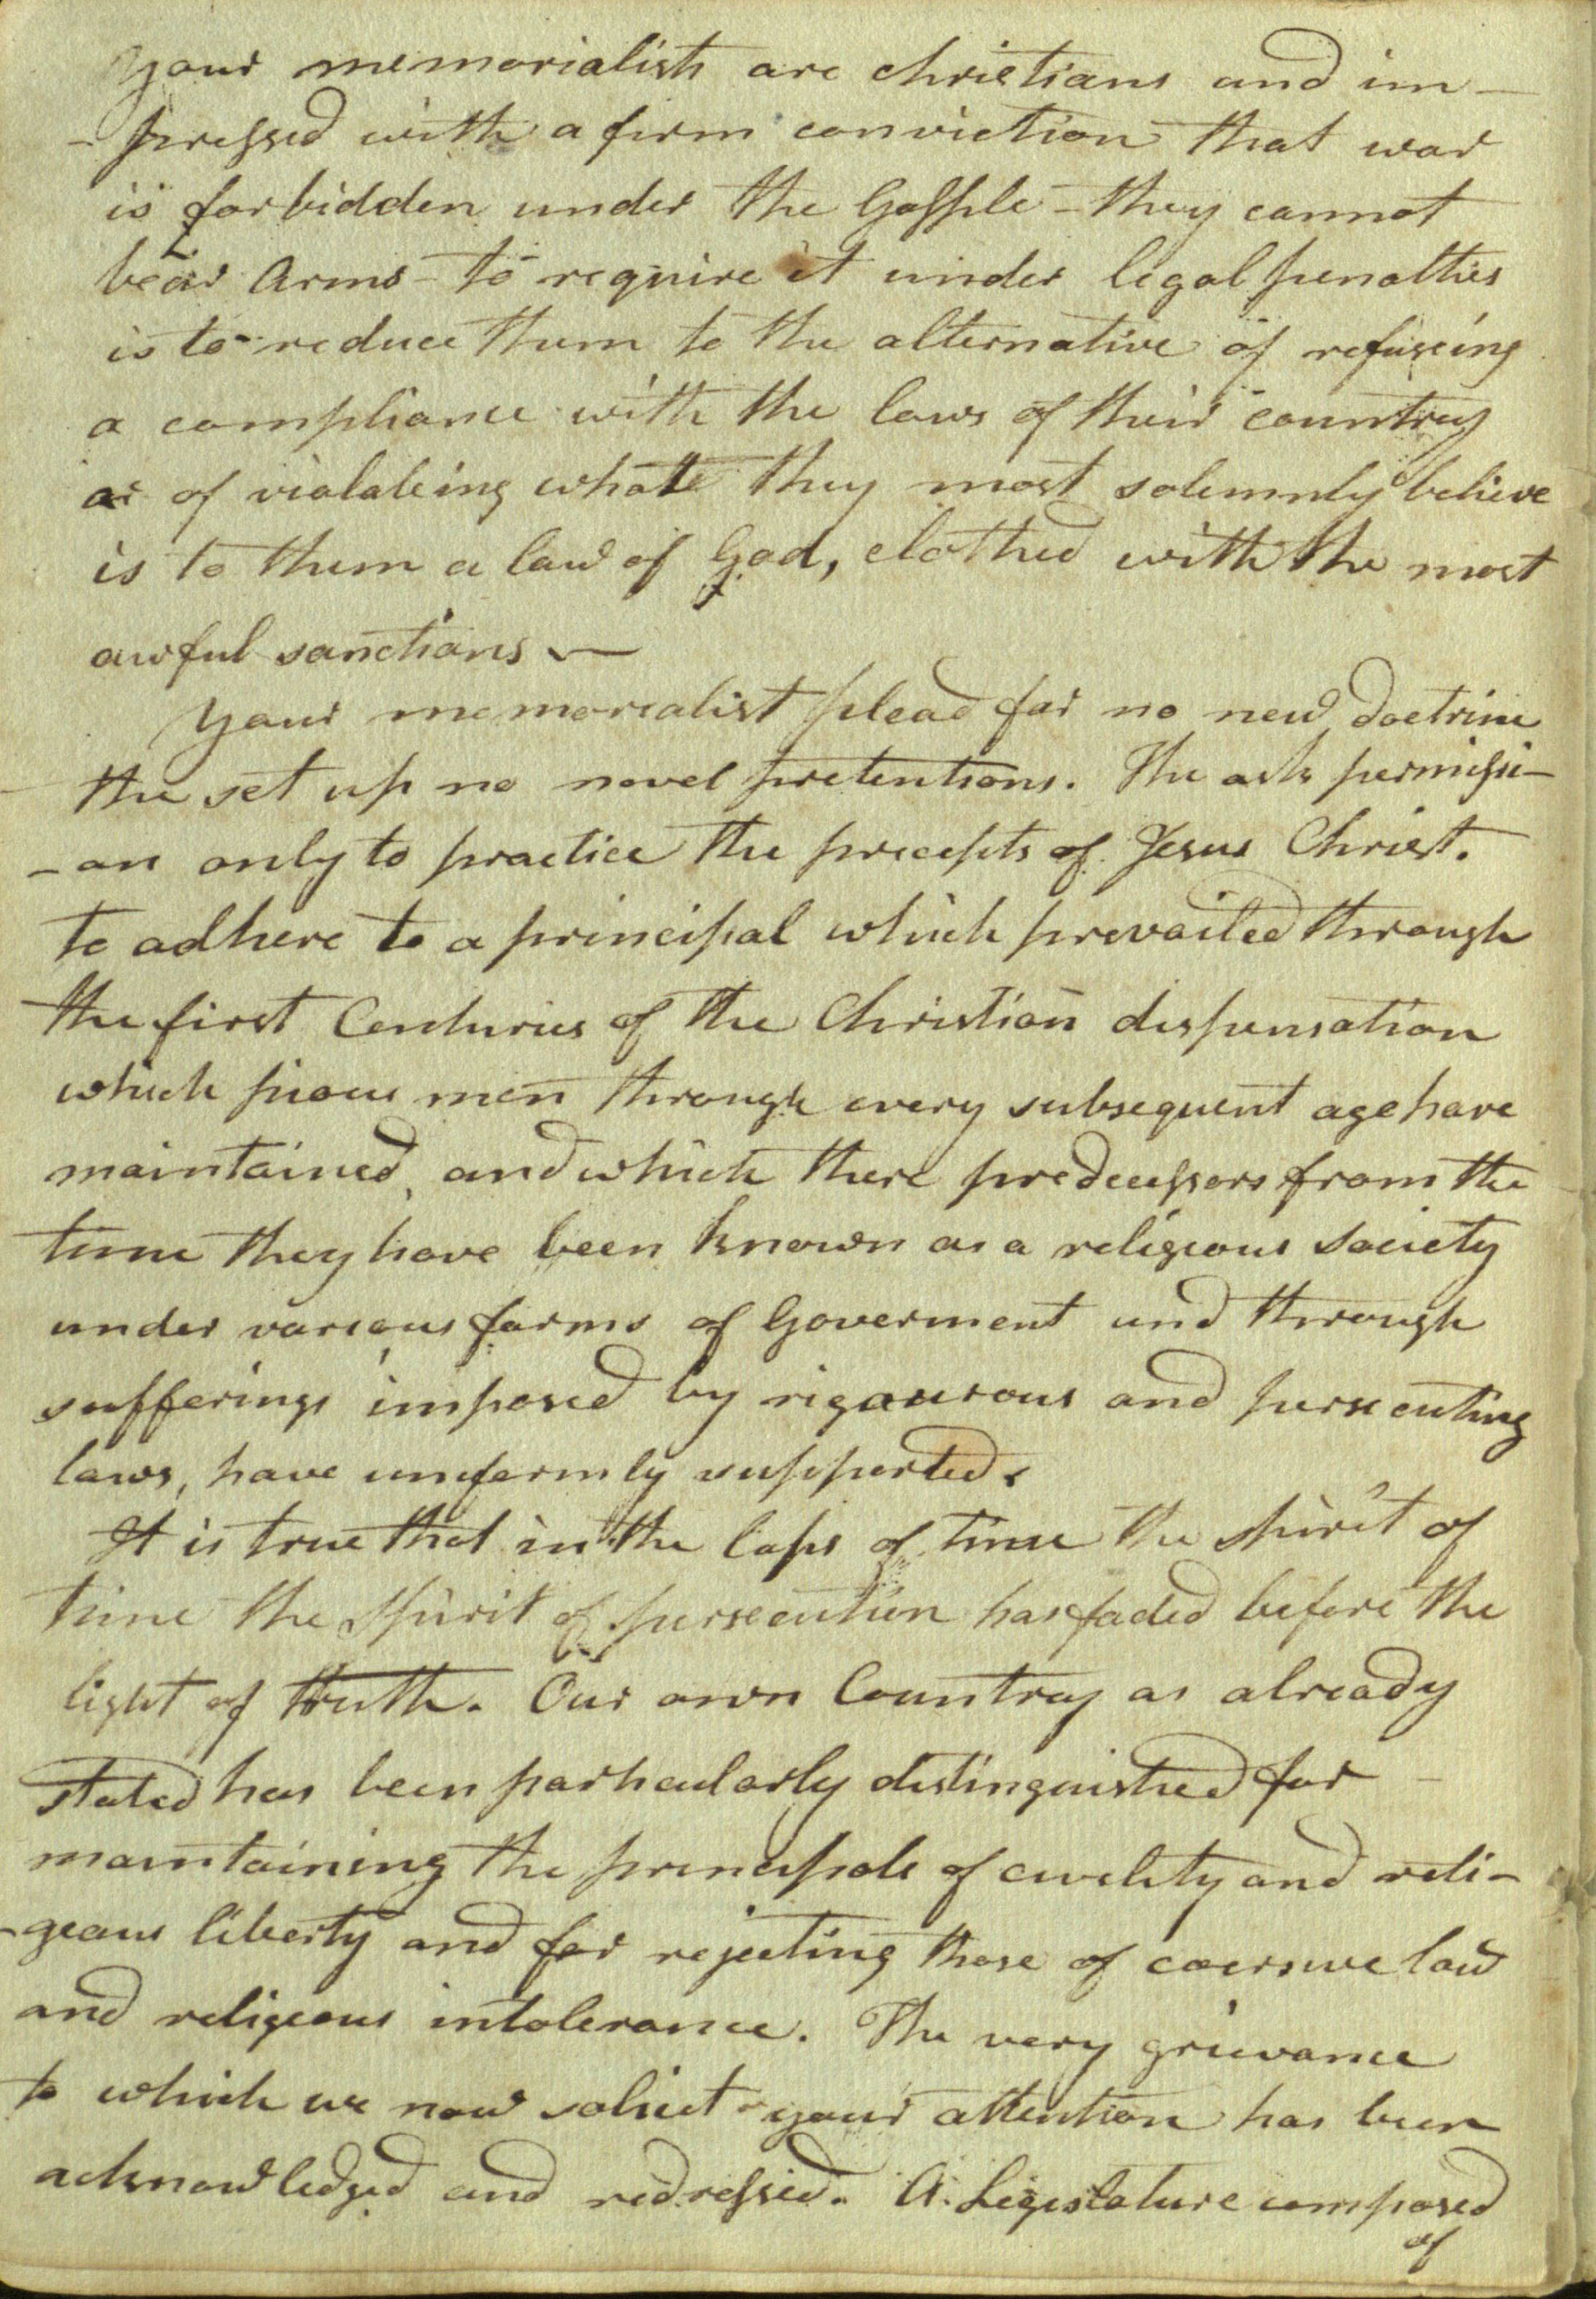 Your memorialists are christians and im-
-pressed with a firm conviction that war
is forbidden under the Gosple - they cannot
bear Arms - to require it under legal penalties
is to reduce them to the alternative of refuseing
a compliance with the laws of their country
or of violateing whate they most solemnly believe
is to them a law of God, clothed with the most
awful sanctions —
Your memorealist plead for no new doctrine
the set up no novel pretentions. The ask permissi-
-on only to practice the precepts of Jesus Christ.
to adhere to a principal which prevailed through
the first Centuries of the Christian dispensation
which pious men through every subsequent age have
maintained, and which there predecessors from the
time they have been known as a religeous society
under vareous forms of Goverment and through
sufferings imposed by rigourous and persecuting
laws, have uneformly supported.
It is true that in the laps of time the spirit of
time the spirit of persecution has faded before the
light of truth. Our own Country as already
stated has been particularly distinguished for
maintaining the principals of civelity and reli-
-geous liberty and for rejecting those of coersive law
and religeous intolerance. The very grievance
to which we now solicit your attention has been
acknowledged and redressed. A Legislature composed
of